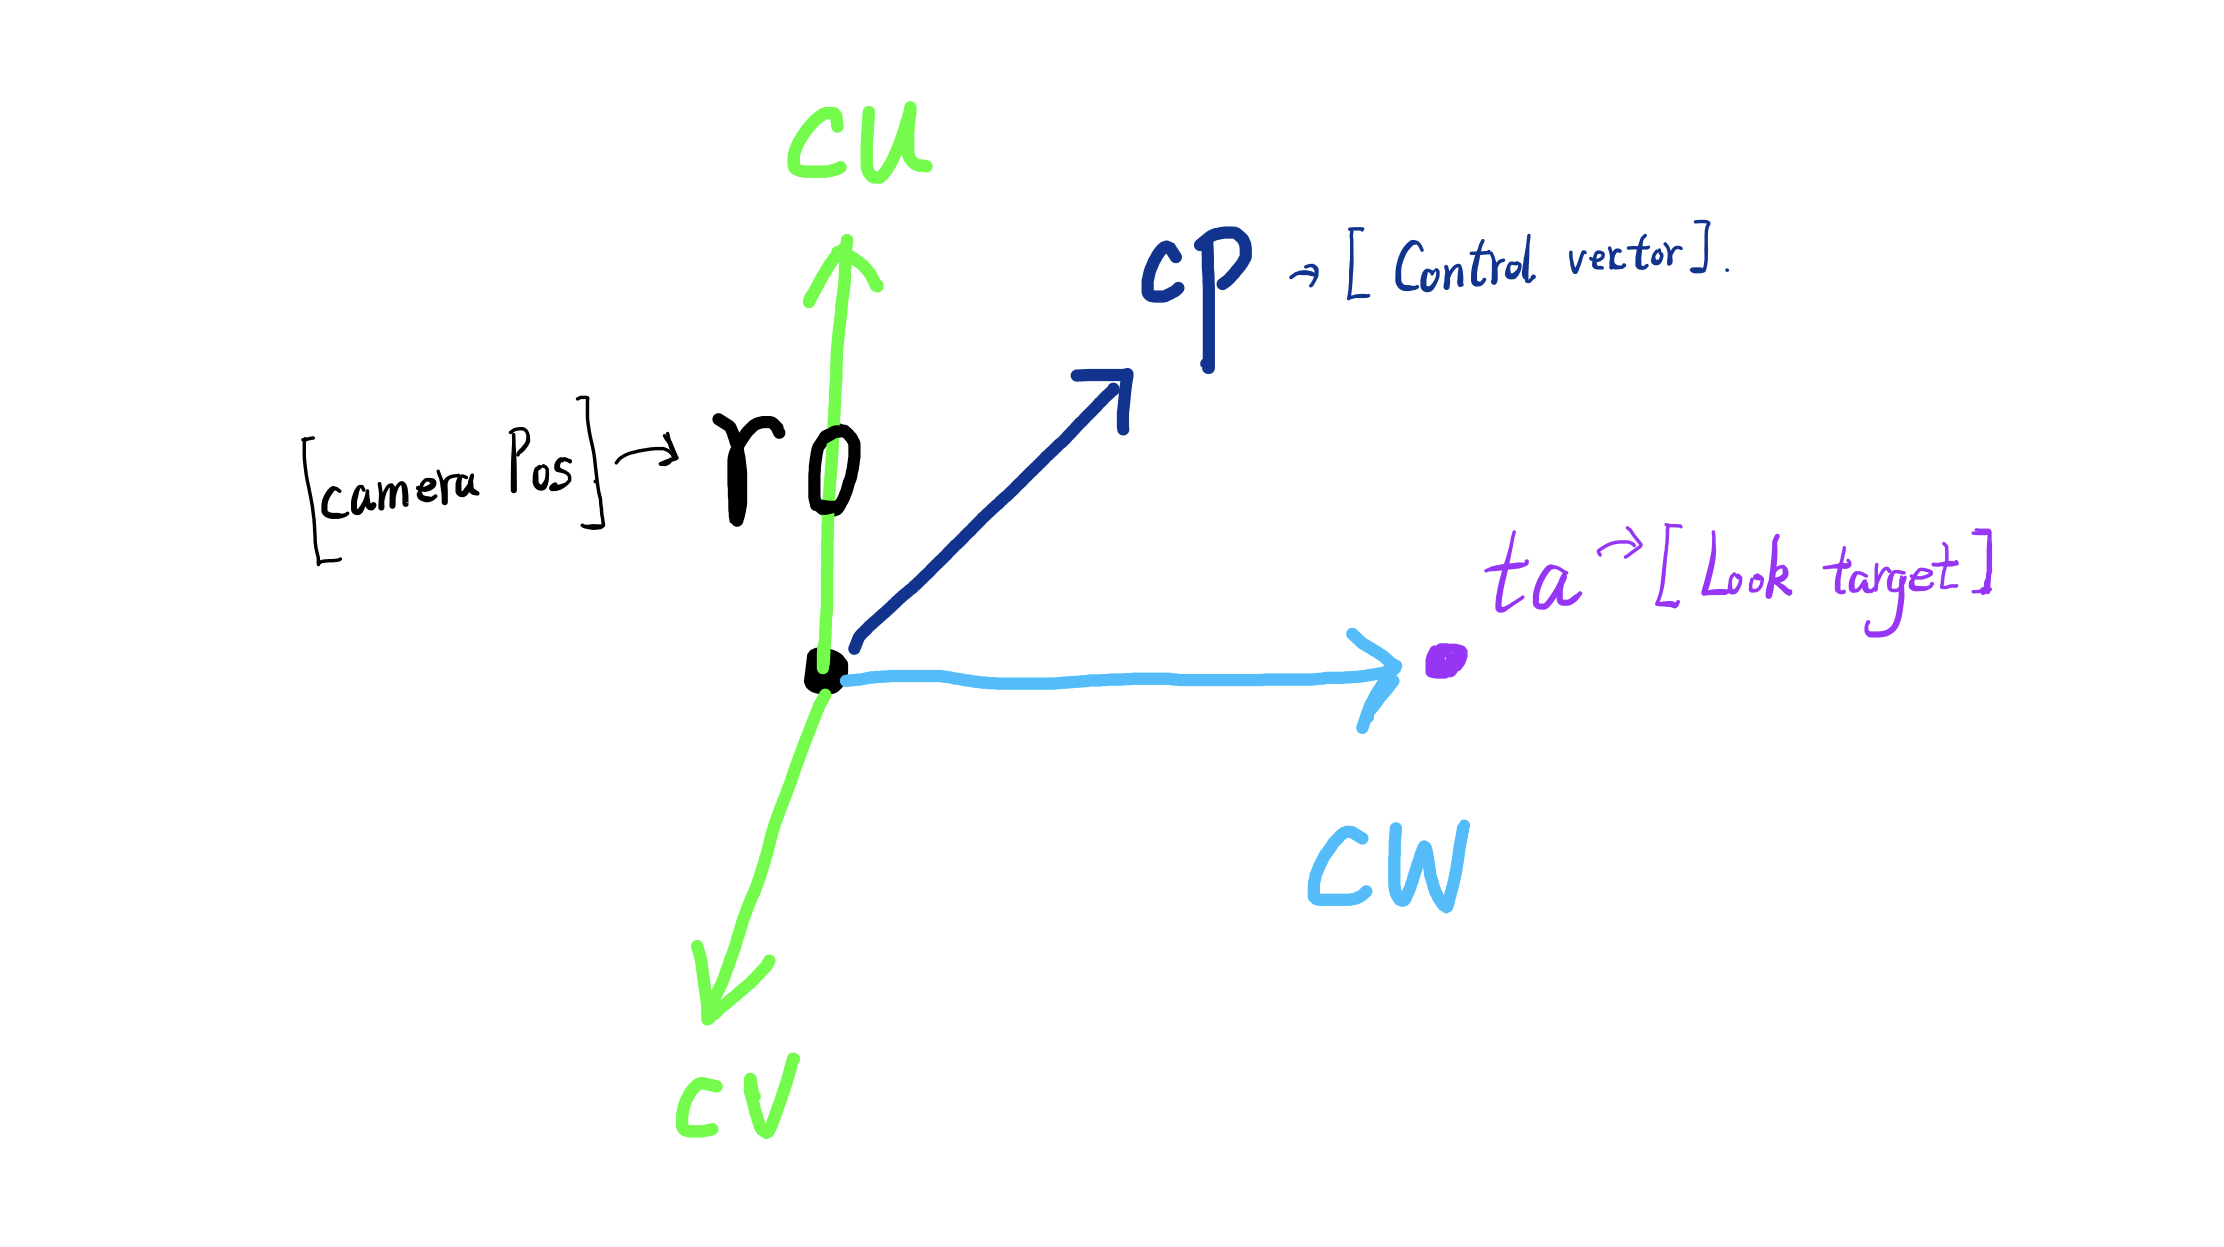 cu
cp → [Control vector].
[camera Pos] → ro
ta → [Look target]
cw
cv